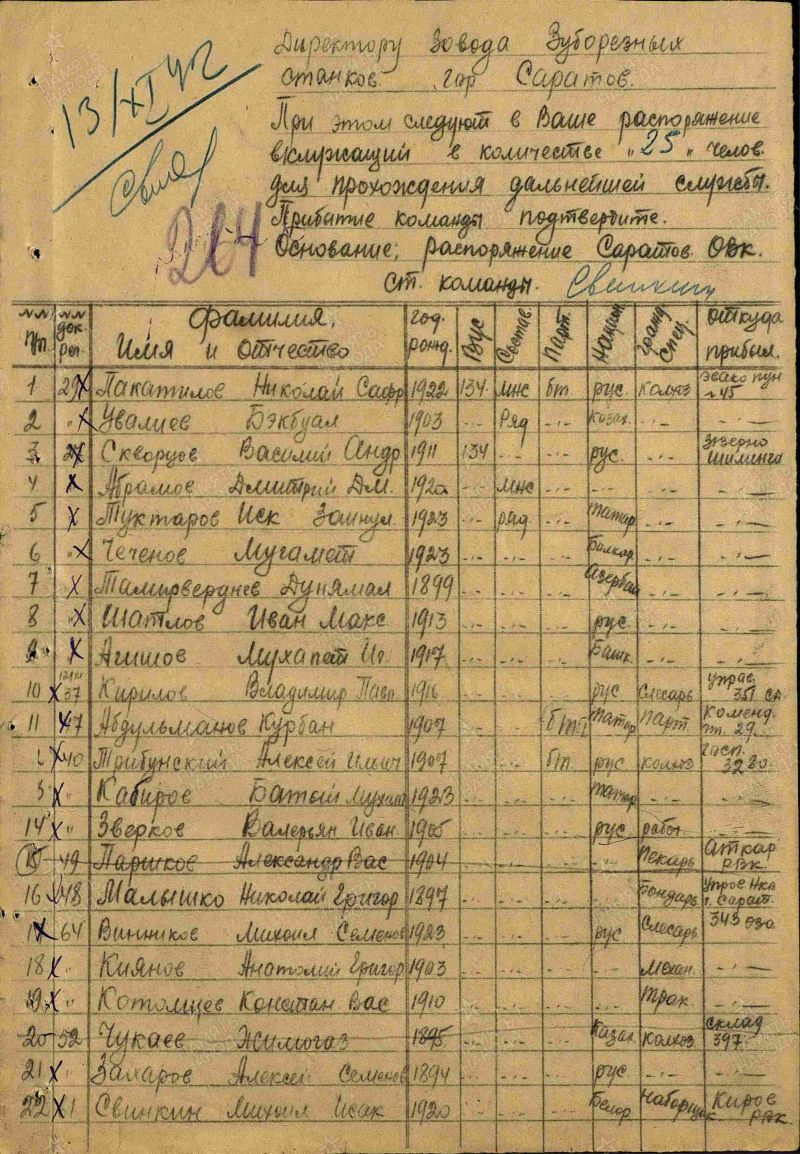 13/XI 42
264
Директору Завода Зуборезных
станков. гор Саратов.
При этом следуют в Ваше распоряжение
в количестве "25" челов.
для прохождения дальнейшей службы.
Прибытие команды подтвердите.
Основание; распоряжение Саратов. ОВК.
ст. команды. Свинкин
№№ п/п. №№ док. рег. Фамилия, Имя и Отчество год. рожд. ВУС Состав. Парт. Национ Гражд Спец. Откуда прибыл.
1 29 Пакатилов Николай Сафр 1922 134. мнс бп. рус. колхоз эвако пун
2 " Увалиев Бэкбуал 1903 -"- Ряд -"- казах. -"- -"-
3 Скворцов Василий Андр 1911 134 -"- -"- рус. -"-
4 Абрамов Дмитрий Дм. мнс -"- -"- -"- -"-
5 Туктаров Иск Зайнул. 1923 -"- ряд -"- татар -"- -"-
6 " Чеченов Мугамет 1923 -"- -"- -"- Балкар -"- -"-
7 Тамирвердиев Дунямал 1899 -"- -"- -"- Азербай -"- -"-
8 " Шатлов Иван Макс 1913 -"- -"- -"- рус. -"- -"-
9 Агишов 1917 -"- -"- -"- Башк -"- -"-
10 37 Кирилов Владимир Павл 1916 -"- -"- -"- рус слесарь управ. 351 сд
11 47 Абдульманов Курбан 1907 -"- -"- татар парт коменд. пт. 29.
40 Трибунский Алексей 1907 -"- -"- бп рус колхоз госп. 3280.
3 " Кабиров Батый 1923 -"- -"- -"- татар -"- -"-
14 " Зверков Валерьян Иван 1905 -"- -"- -"- рус работ -"-
15 49 Паршков Александр Вас 1904 -"- -"- -"- -"- пекарь Аткар РВК.
16 48 Малышко Николай Григор 1897 -"- -"- -"- -"- Бондарь г. Сарат.
17 64 Винников Михаил Семенов 1923 -"- -"- -"- рус Слесарь 343 оза
18 " Киянов Анатолий Григор 1903 -"- -"- -"- -"- механ. -"-
19 " Котолщев Констан. Вас 1910 -"- -"- -"- -"- Трак. -"-
20 52 Чукаев Жимогаз 1895 -"- -"- -"- Казах. колхоз склад 397
21 " Захаров Алексей Семенов 1894 -"- -"- -"- рус -"- -"-
22 1 Свинкин Михаил Исак 1920 -"- -"- -"- Белор Наборщик Киров РВК.